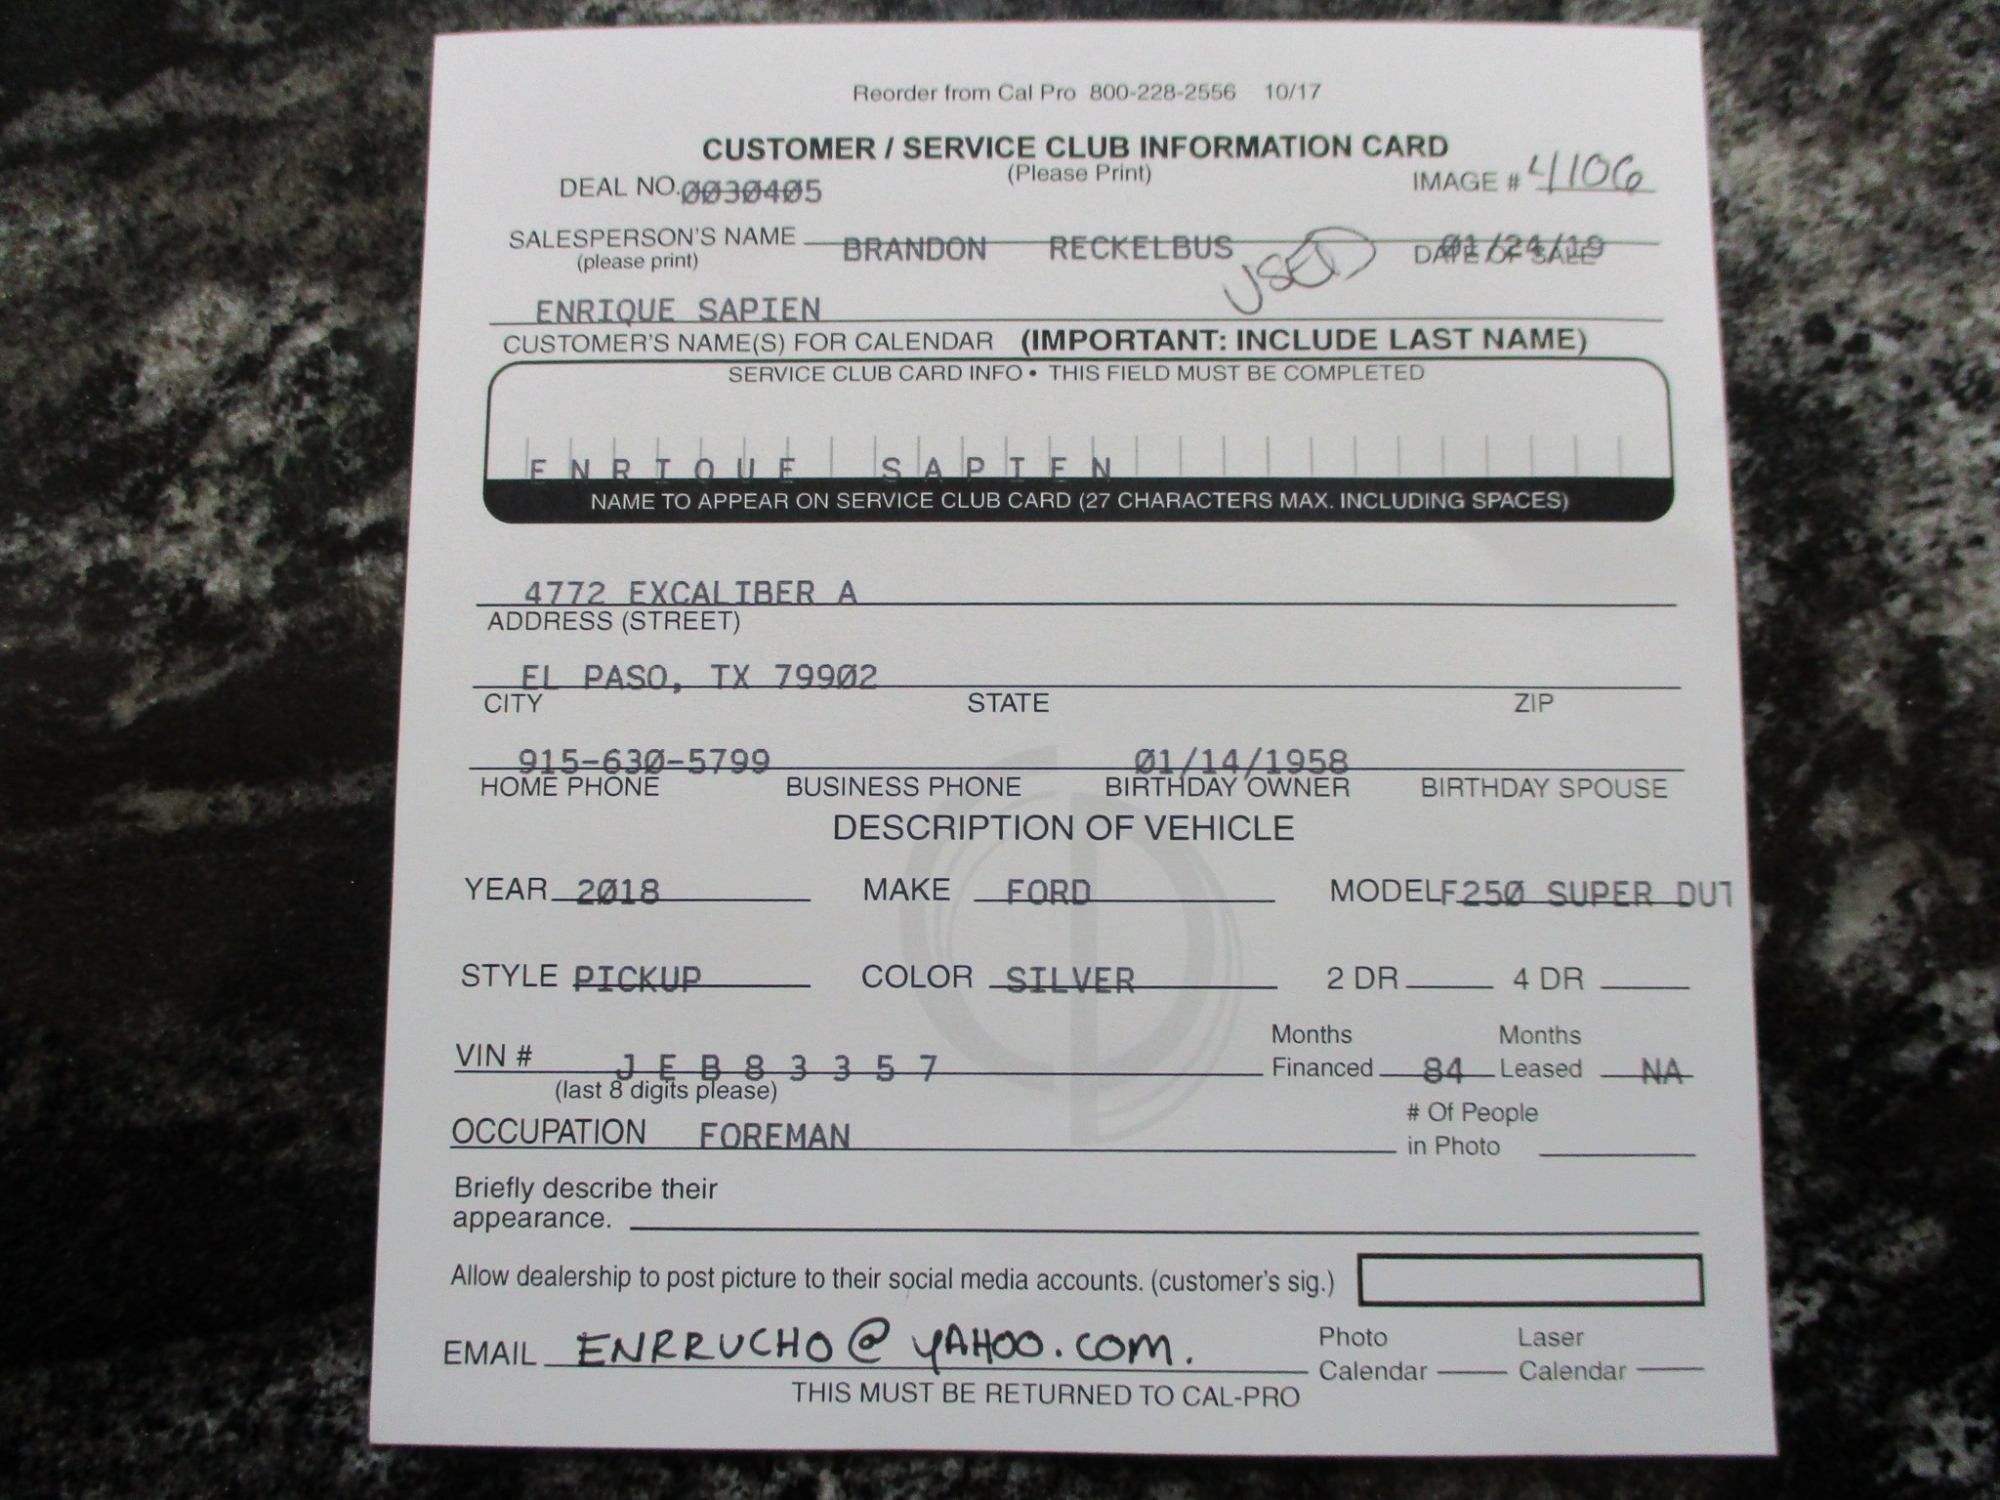 Reorder from Cal Pro 800-228-2556 10/17
CUSTOMER / SERVICE CLUB INFORMATION CARD
(Please Print)
DEAL NO. 0030405 IMAGE # 4106
SALESPERSON'S NAME BRANDON RECKELBUS USED DATE OF SALE 01/24/19
(please print)
ENRIQUE SAPIEN
CUSTOMER'S NAME(S) FOR CALENDAR (IMPORTANT: INCLUDE LAST NAME)
SERVICE CLUB CARD INFO • THIS FIELD MUST BE COMPLETED
ENRIQUE SAPIEN
NAME TO APPEAR ON SERVICE CLUB CARD (27 CHARACTERS MAX. INCLUDING SPACES)
4772 EXCALIBER A
ADDRESS (STREET)
EL PASO, TX 79902
CITY STATE ZIP
915-630-5799 01/14/1958
HOME PHONE BUSINESS PHONE BIRTHDAY OWNER BIRTHDAY SPOUSE
DESCRIPTION OF VEHICLE
YEAR 2018 MAKE FORD MODEL F250 SUPER DUT
STYLE PICKUP COLOR SILVER 2 DR 4 DR
VIN # JEB83357 Months Financed 84 Months Leased NA
(last 8 digits please)
OCCUPATION FOREMAN # Of People in Photo
Briefly describe their
appearance.
Allow dealership to post picture to their social media accounts. (customer's sig.)
EMAIL ENRRUCHO@YAHOO.COM. Photo Calendar Laser Calendar
THIS MUST BE RETURNED TO CAL-PRO